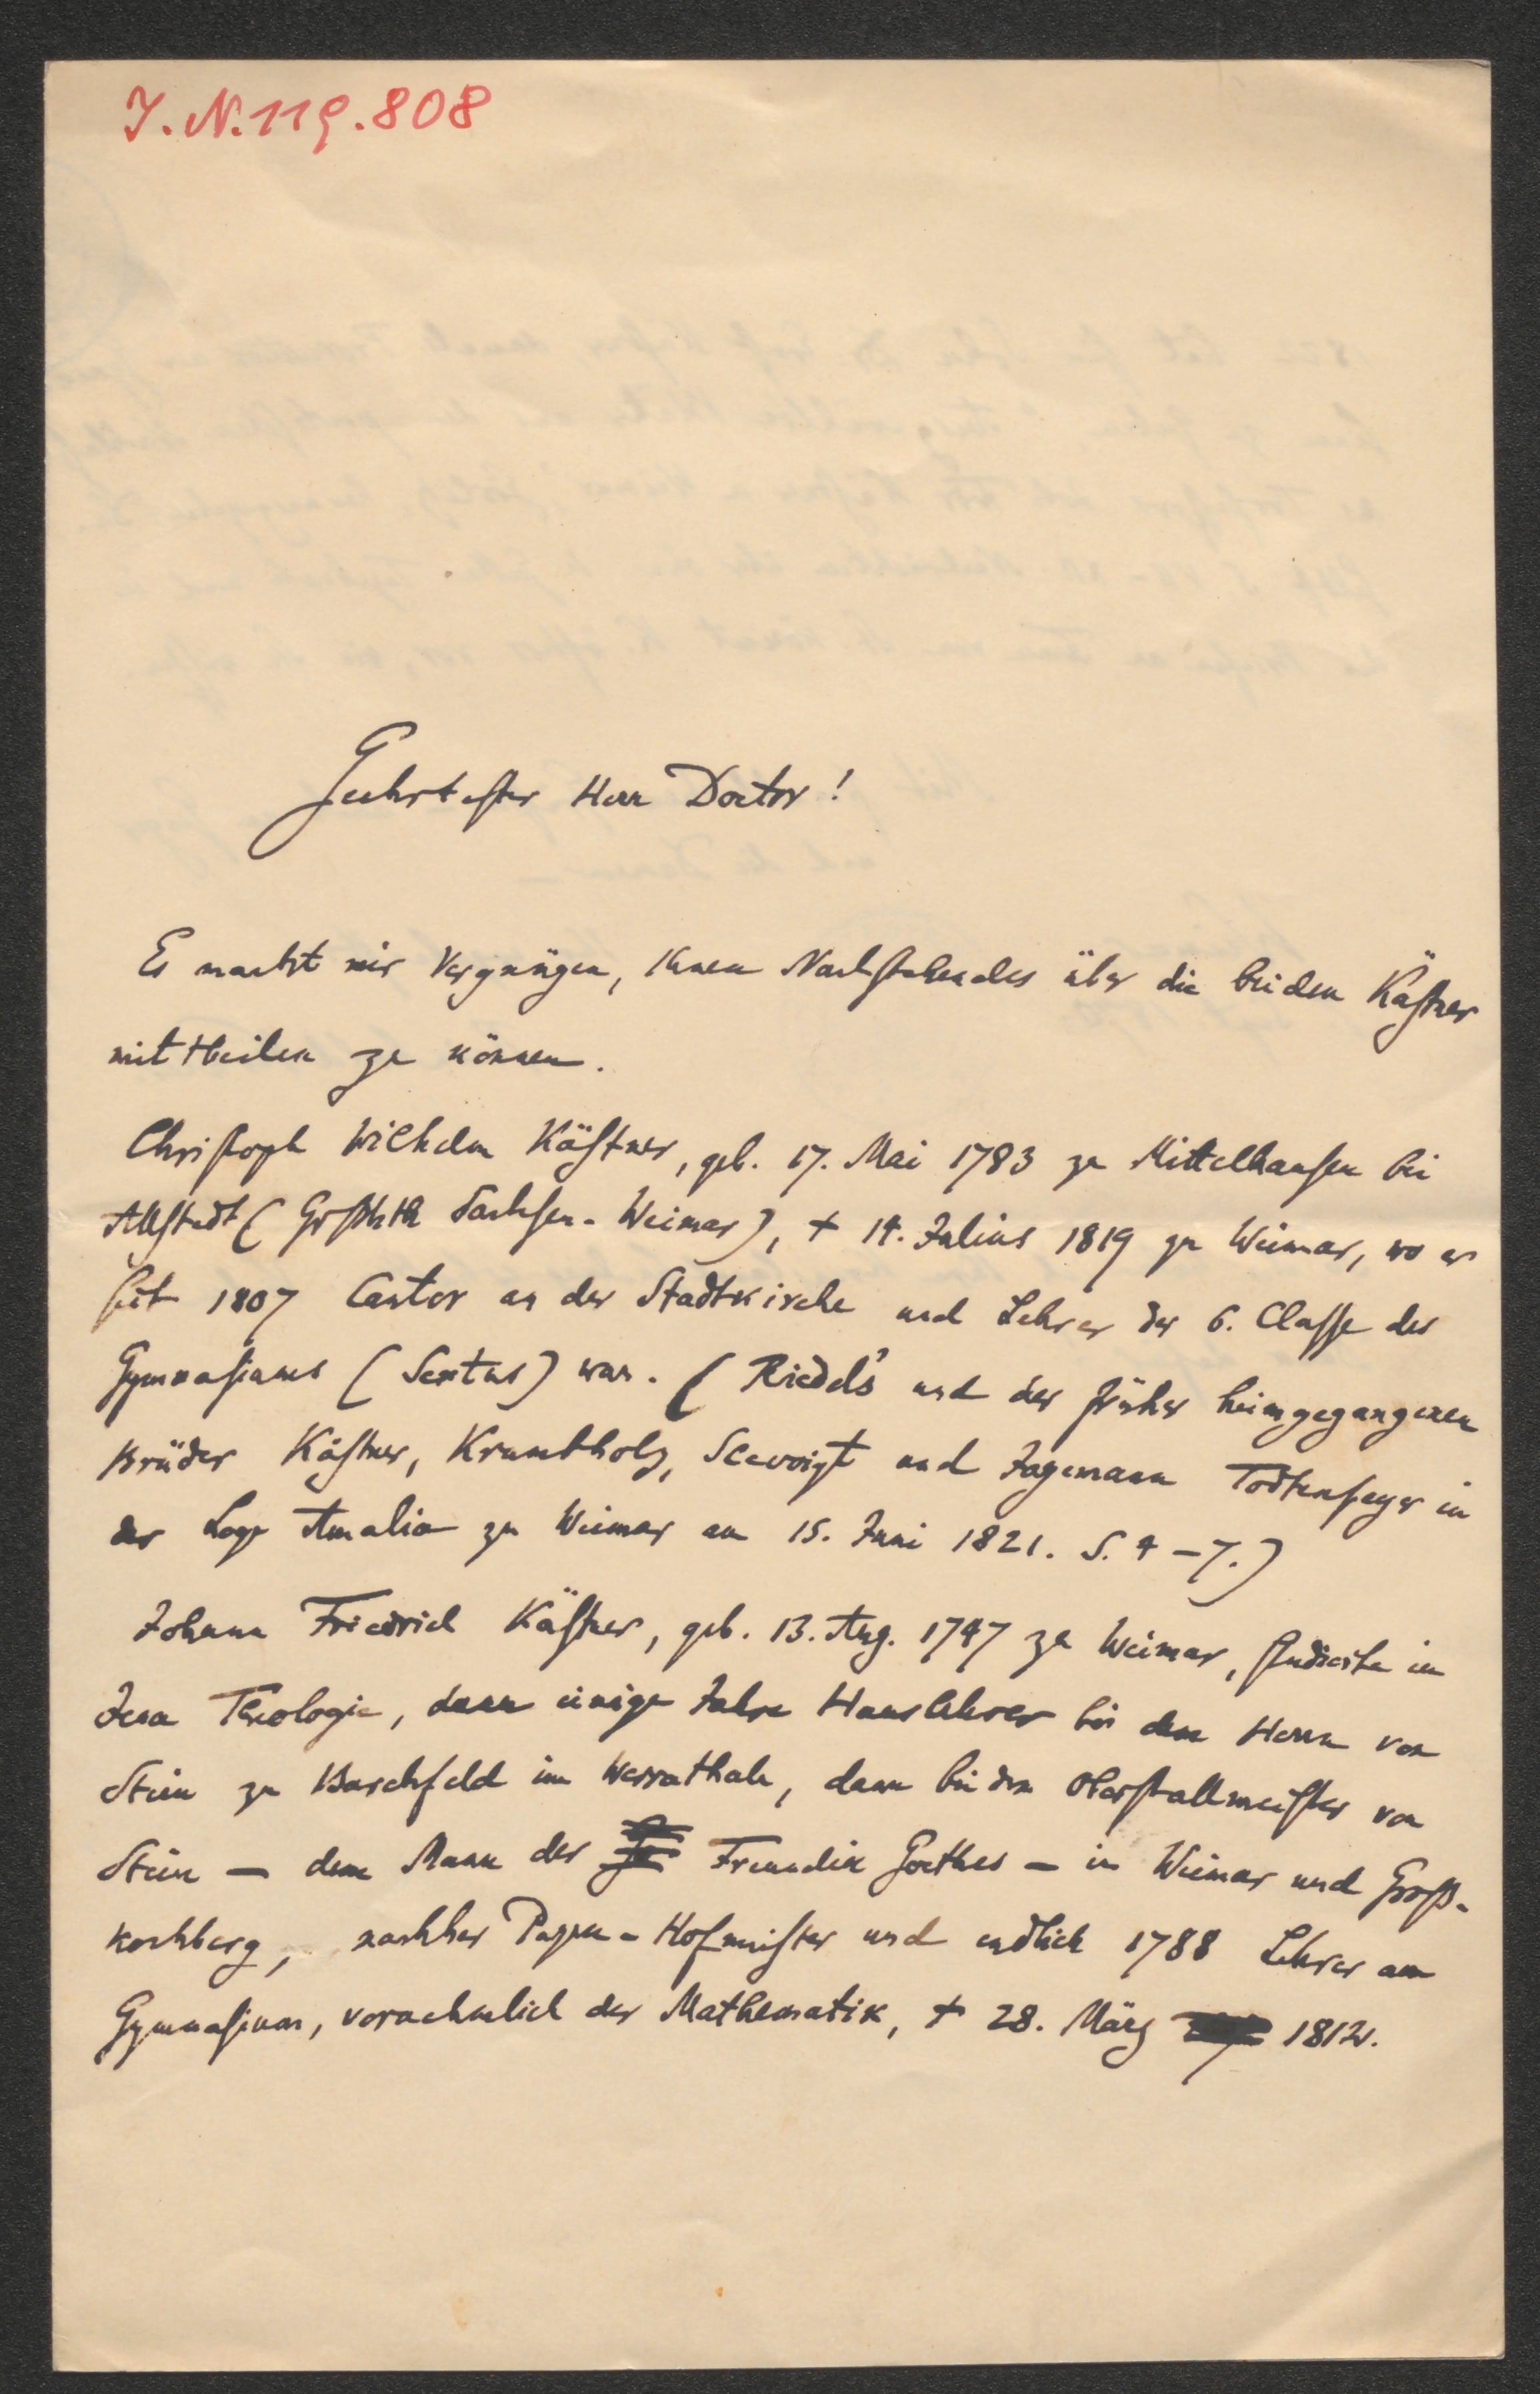 J.N.119.808
Geehrtester Herr Doctor!
Es macht mir Vergnügen, Ihnen Nachstehendes über die beiden Kästner
mittheilen zu können.
Christoph Wilhelm Kästner, geb. 17. Mai 1783 zu Mittelhausen bei
Allstedt (Großhth Sachsen-Weimar), + 14. Julius 1819 zu Weimar, wo er
seit 1807 Cantor an der Stadtkirche und Lehrer der 6. Classe des
Gymnasiums (Sextus) war. (Riedels und der früher heimgegangenen
Brüder Kästner, Krumbholz, Slevoigt und Jagemann Todtenfeyer in
der Loge Amalia zu Weimar am 15. Juni 1821. S. 4-7.)
Johann Friedrich Kästner, geb. 13. Aug. 1747 zu Weimar, studierte in
Jena Theologie, dann einige Jahre Hauslehrer bei dem Herrn von
Stein zu Barchfeld im Werrathale, dann bei dem Oberstallmeister von
Stein — dem Mann der Freundin Goethes — in Weimar und Groß-
kochberg, nachher Pagen-Hofmeister und endlich 1788 Lehrer am
Gymnasium, vornehmlich der Mathematik, + 28. März 1812.